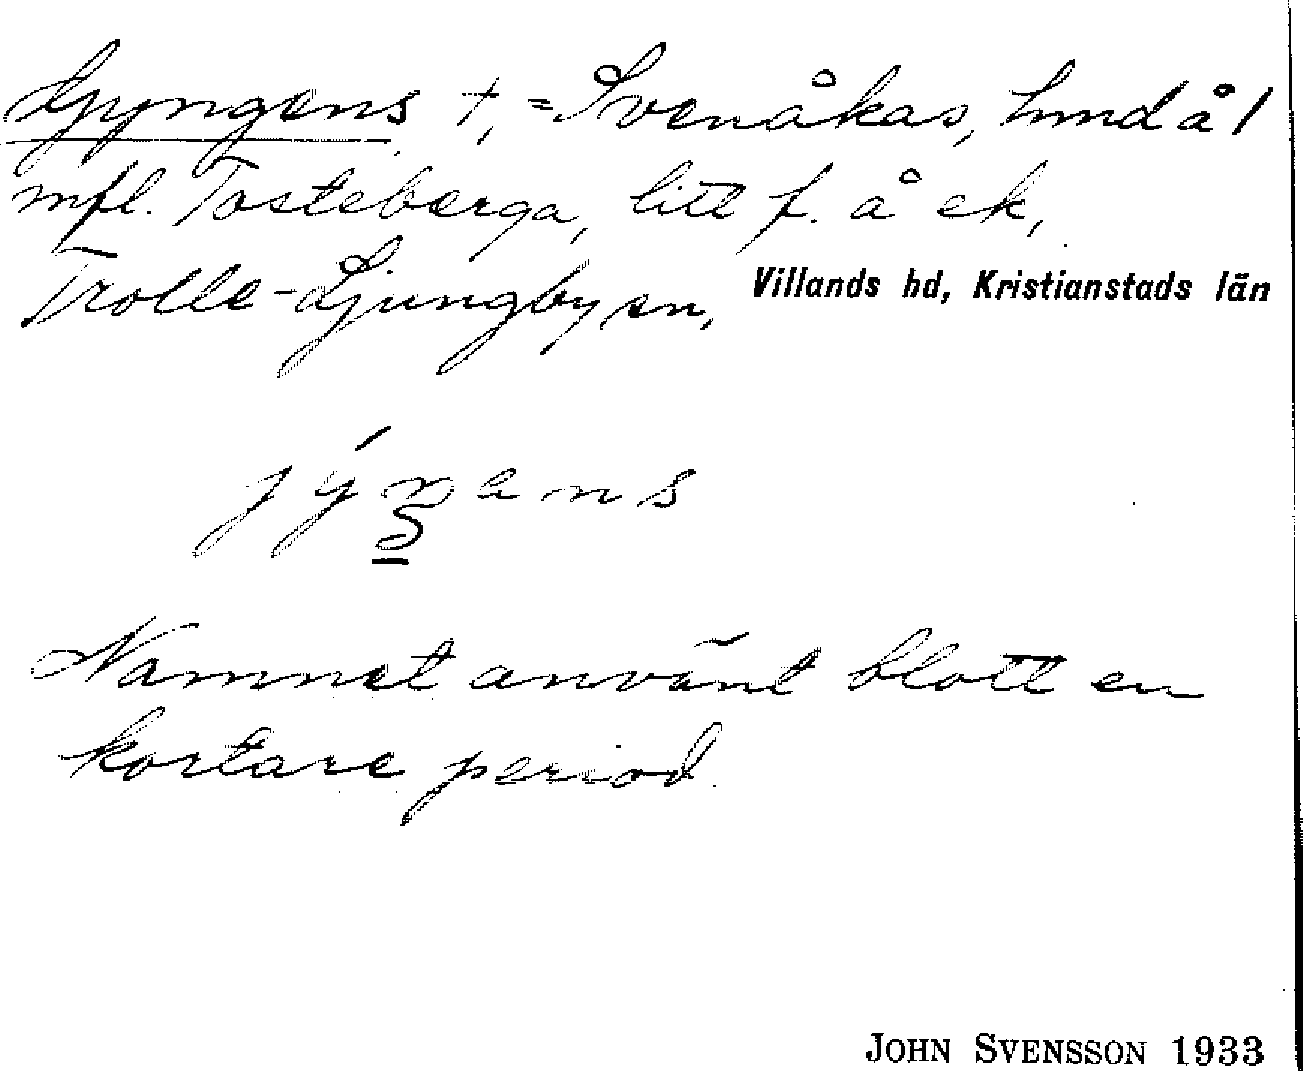 Ljyngens †, = Svenåkas, hmd å 1
mfl. Tosteberga, litt f. å ek,
Trolle-Ljungby sn, Villands hd, Kristianstads län
Namnet använt blott en
kortare period.
JOHN SVENSSON 1933